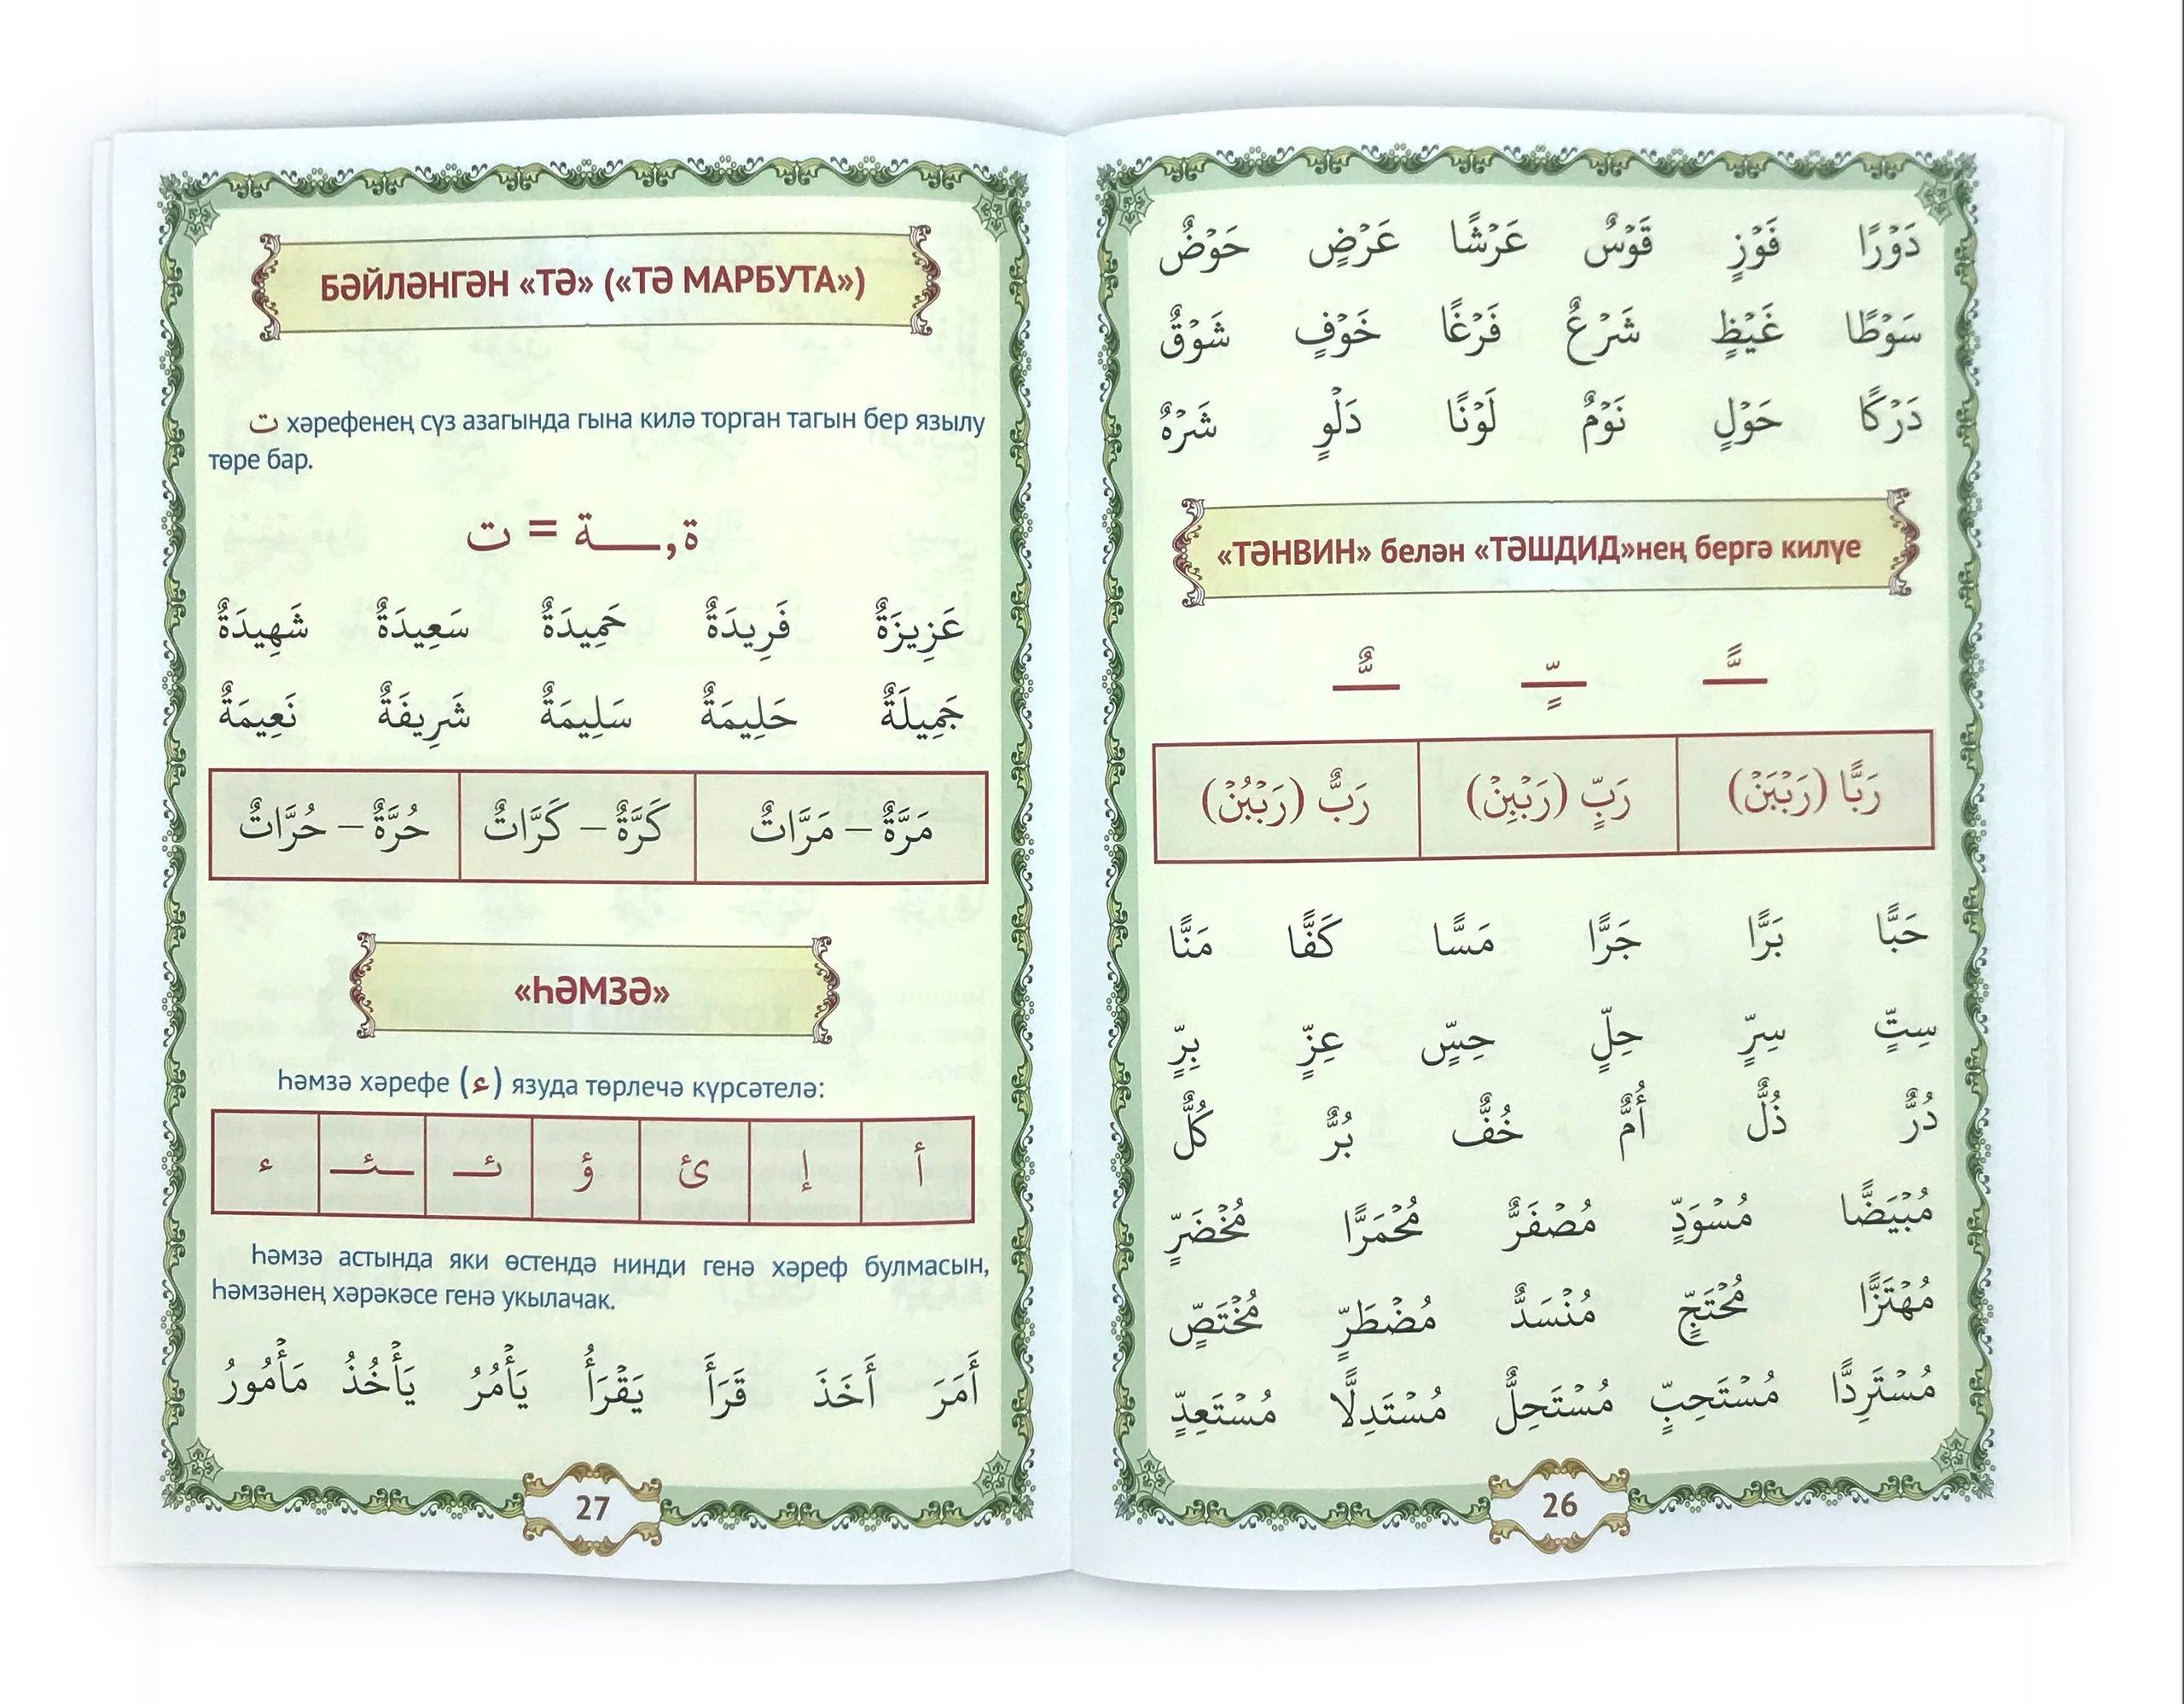 دَوْرًا فَوْزٍ قَوْسٌ عَرْشًا عَرْضٍ حَوْضٌ
سَوْطًا غَيْظٍ شَرْعٌ فَرْغًا خَوْفٍ شَوْقٌ
دَرْكًا حَوْلٍ نَوْمٌ لَوْنًا دَلْوٍ شَرْهٌ
«ТӘНВИН» белән «ТӘШДИД»нең бергә килүе
ـًّ ـٍّ ـٌّ
رَبًّا (رَبْبَنْ) رَبٍّ (رَبْبِنْ) رَبٌّ (رَبْبُنْ)
حَبًّا بَرًّا جَرًّا مَسًّا كَفًّا مَنًّا
سِتٍّ سِرٍّ حِلٍّ حِسٍّ عِزٍّ بِرٍّ
دُرٌّ ذُلٌّ أُمٌّ خُفٌّ بُرٌّ كُلٌّ
مُبْيَضًّا مُسْوَدٍّ مُصْفَرٌّ مُحْمَرًّا مُخْضَرٍّ
مُهْتَزًّا مُحْتَجٍّ مُنْسَدٌّ مُضْطَرٍّ مُخْتَصٍّ
مُسْتَرِدًّا مُسْتَحِبٍّ مُسْتَحِلٌّ مُسْتَدِلًّا مُسْتَعِدٍّ
26
БӘЙЛӘНГӘН «ТӘ» («ТӘ МАРБУТА»)
ت хәрефенең сүз азагында гына килә торган тагын бер язылу
төре бар.
ة, ـة = ت
عَزِيزَةٌ فَرِيدَةٌ حَمِيدَةٌ سَعِيدَةٌ شَهِيدَةٌ
جَمِيلَةٌ حَلِيمَةٌ سَلِيمَةٌ شَرِيفَةٌ نَعِيمَةٌ
مَرَّةٌ – مَرَّاتٌ كَرَّةٌ – كَرَّاتٌ حُرَّةٌ – حُرَّاتٌ
«ҺӘМЗӘ»
Һәмзә хәрефе (ء) язуда төрлечә күрсәтелә:
أ إ ئ ؤ ئـ ـئـ ء
Һәмзә астында яки өстендә нинди генә хәреф булмасын,
Һәмзәнең хәрәкәсе генә укылачак.
أَمَرَ أَخَذَ قَرَأَ يَقْرَأُ يَأْمُرُ يَأْخُذُ مَأْمُورُ
27